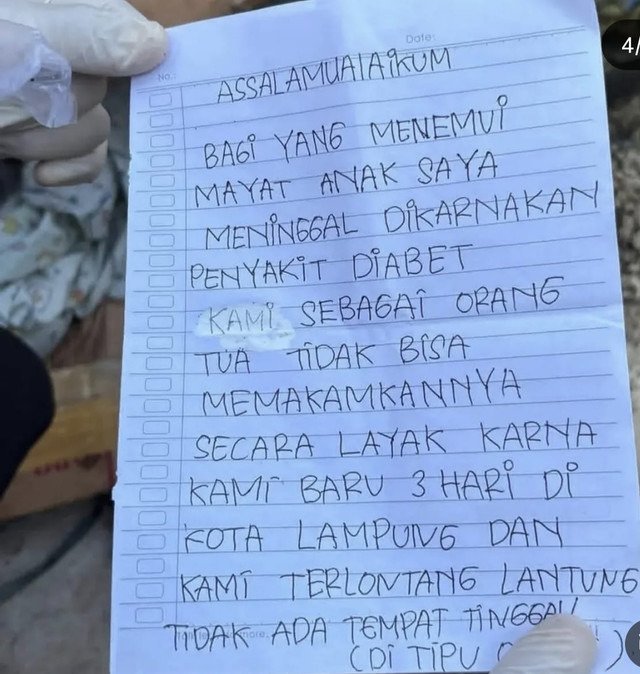 4/
No.:
Date:
ASSALAMUALAIKUM
BAGI YANG MENEMUI
MAYAT ANAK SAYA
MENINGGAL DIKARNAKAN
PENYAKIT DIABET
KAMI SEBAGAI ORANG
TUA TIDAK BISA
MEMAKAMKANNYA
SECARA LAYAK KARNA
KAMI BARU 3 HARI DI
KOTA LAMPUNG DAN
KAMI TERLONTANG LANTUNG
TIDAK ADA TEMPAT TINGGAL
(DI TIPU )